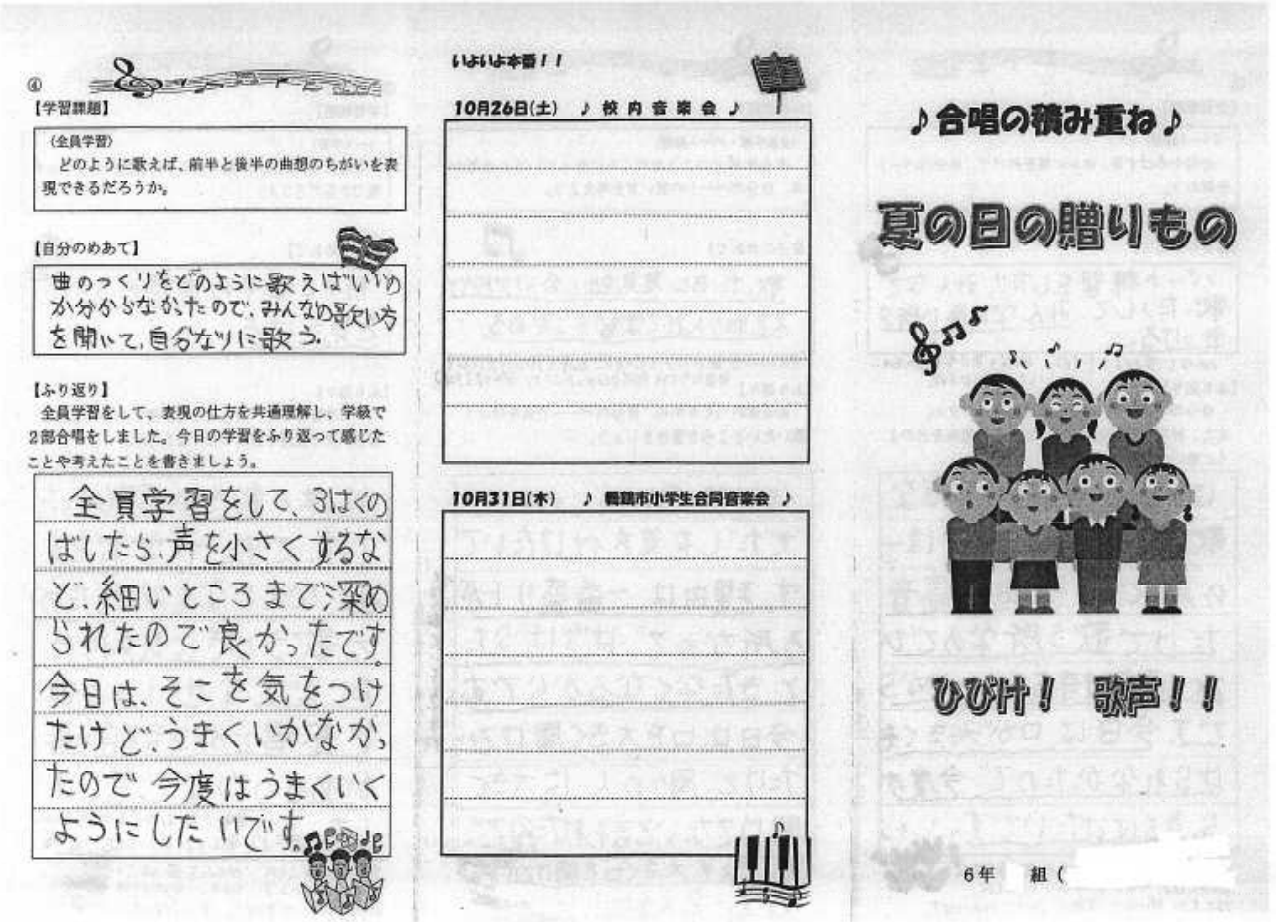 ④
【学習課題】
〈全員学習〉
どのように歌えば、前半と後半の曲想のちがいを表
現できるだろうか。
【自分のめあて】
曲のつくりをどのように歌えばいいの
か分からなかったので、みんなの歌い方
を聞いて、自分なりに歌う。
【ふり返り】
全員学習をして、表現の仕方を共通理解し、学級で
2部合唱をしました。今日の学習をふり返って感じた
ことや考えたことを書きましょう。
全員学習をして、3はくの
ばしたら声を小さくするな
ど、細いところまで深め
られたので良かったです。
今日は、そこを気をつけ
たけど、うまくいかなかっ
たので今度はうまくいく
ようにしたいです。
いよいよ本番！！
10月26日(土) ♪ 校内音楽会 ♪
10月31日(木) ♪ 鶴市小学生合同音楽会 ♪
♪合唱の積み重ね♪
夏の日の贈りもの
ひびけ！ 歌声！！
6年 組（